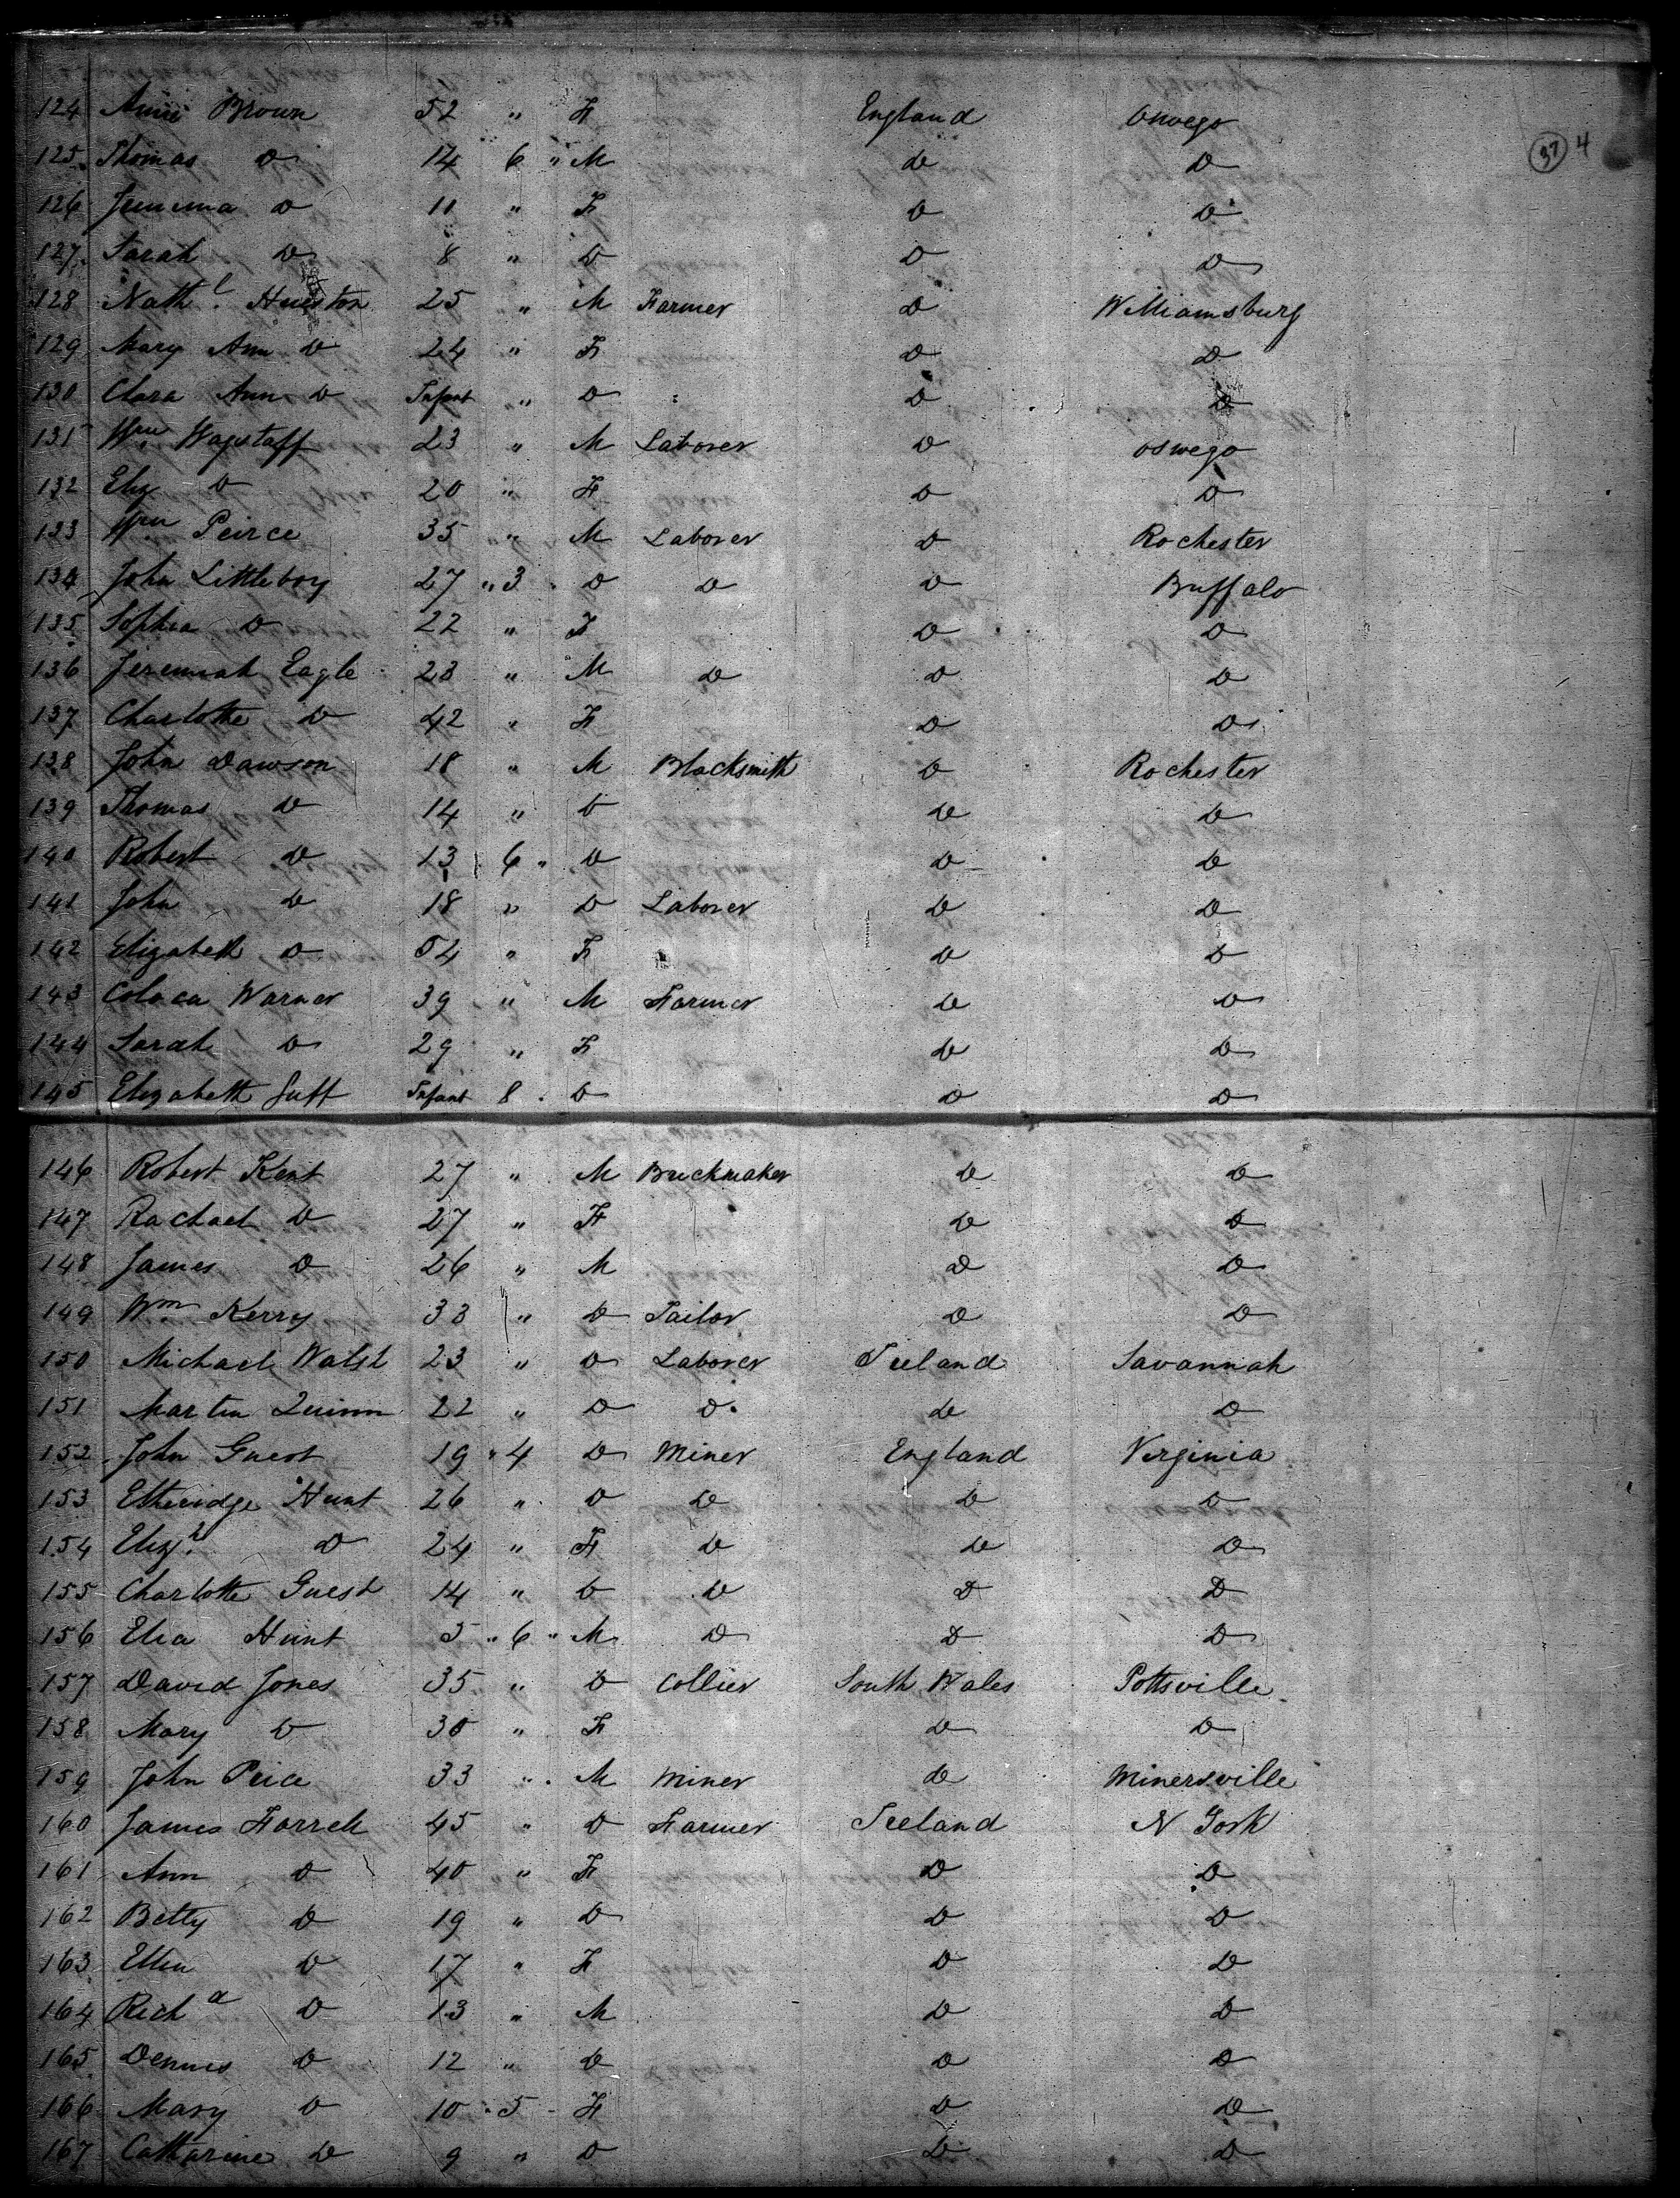 124 Anni Brown 52 " F England Oswego
125 Thomas Do 14 6 " M do Do
37 4
126 Jemima Do 11 " F Do Do
127 Sarah Do 8 " Do Do Do
128 Nathl. Huston 25 " M Farmer Do Williamsburg
129 Mary Ann Do 24 " F Do Do
130 Clara Ann Do Infant " Do Do Do
131 Wm Wagstaff 23 " M Laborer Do oswego
132 Eliz Do 20 " F Do Do
133 Wm Peirce 35 " M Laborer Do Rochester
134 John Littleboy 27 " 3 Do Do Do Buffalo
135 Sophia Do 22 " F Do Do
136 Jeremiah Eagle 23 " M Do Do Do
137 Charlotte Do 42 " F Do Do
138 John Dawson 18 " M Blacksmith Do Rochester
139 Thomas Do 14 " Do Do Do
140 Robert Do 13 6 " Do Do Do
141 John Do 18 " Do Laborer Do Do
142 Elizabeth Do 54 " F Do Do
143 Warner 39 " M Farmer Do Do
144 Sarah Do 29 " F Do Do
145 Elizabeth Infant 8 " Do Do Do
146 Robert Kent 27 " M Brickmaker Do Do
147 Rachael Do 27 " F Do Do
148 James Do 26 " M Do Do
149 Wm Kerry 33 " Do Tailor Do Do
150 Michael Walsh 23 " Do Laborer Ireland Savannah
151 Martin Quinn 22 " Do Do do Do
152 John Guest 19 " 4 Do Miner England Virginia
153 Etheridge Hunt 26 " Do Do Do Do
154 Elizh Do 24 " F Do do Do
155 Charlotte Guest 14 " Do Do Do Do
156 Elia Hunt 5 " 6 " M Do Do Do
157 David Jones 35 " Do Collier South Wales Pottsville
158 Mary Do 30 " F Do Do
159 John Peice 33 " M Miner do Minersville
160 James Farrell 45 " Do Farmer Ireland N York
161 Ann Do 40 " F Do Do
162 Betty Do 19 " Do Do Do
163 Ellen Do 17 " F Do Do
164 Richd Do 13 " M Do Do
165 Dennis Do 12 " Do Do Do
166 Mary Do 10 " 5 - F Do Do
167 Catharine Do 9 " Do Do Do